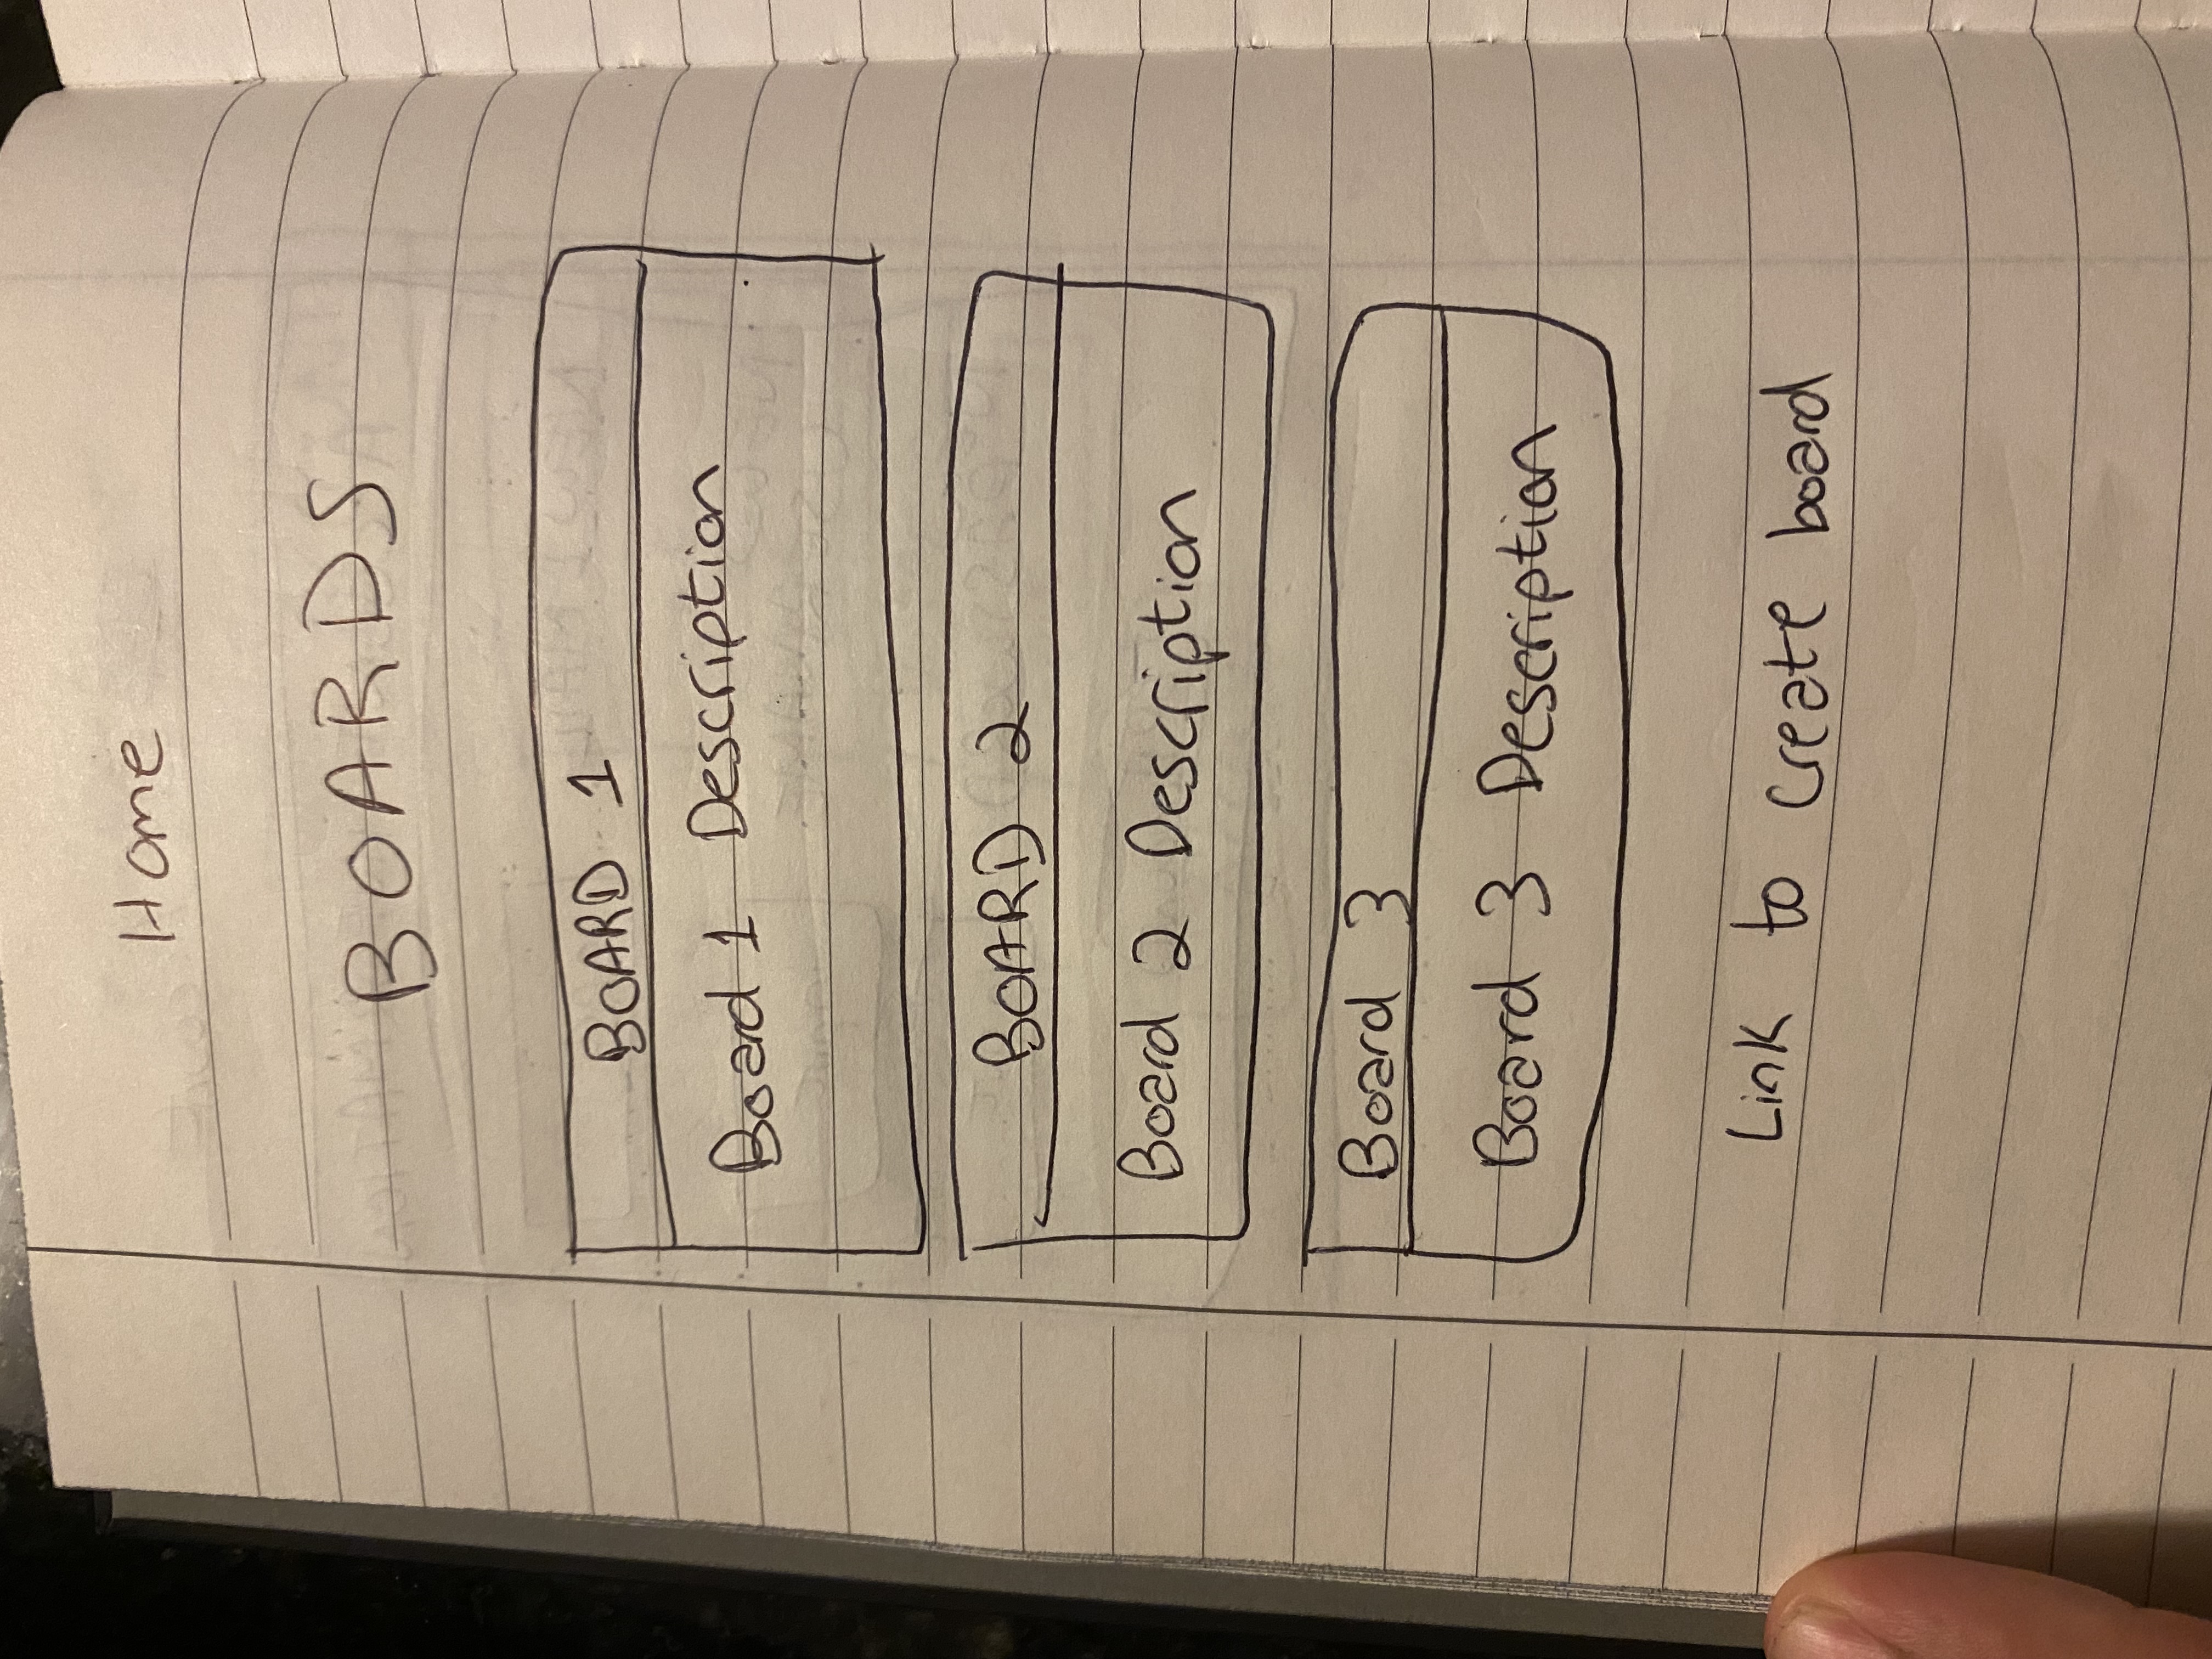 Home
BOARDS
BOARD 1
Board 1 Description
BOARD 2
Board 2 Description
Board 3
Board 3 Description
Link to create board